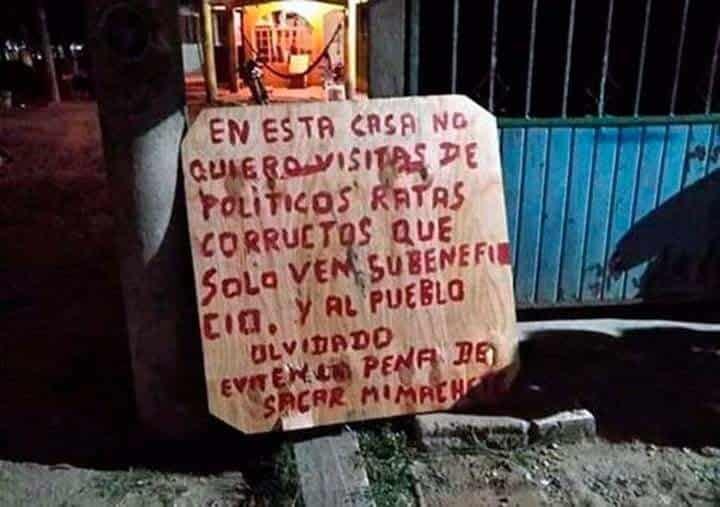 EN ESTA CASA NO
QUIERO VISITAS DE
POLITICOS RATAS
CORRUCTOS QUE
SOLO VEN SU BENEFI
CIO. Y AL PUEBLO
OLVIDADO
EVITEN LA PENA DE
SACAR MI MACHETE